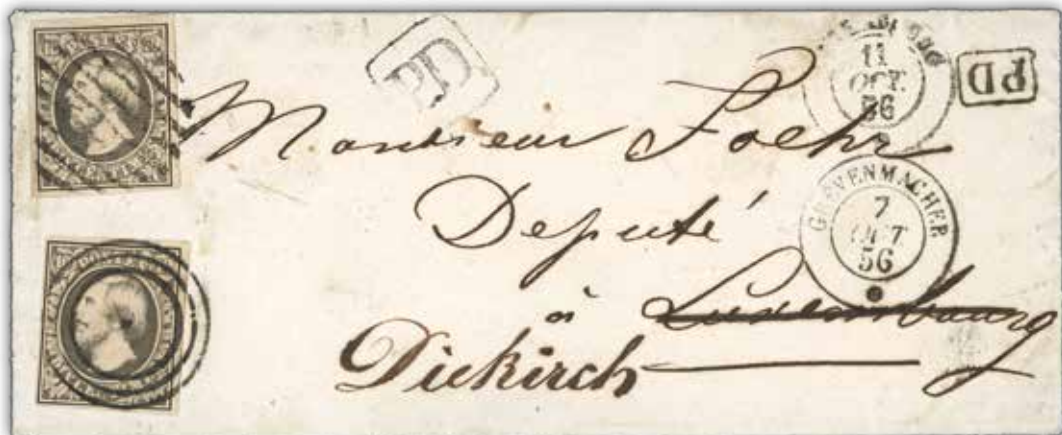 PD
11
OCT.
56
PD
Monsieur Foehr
Deputé
GREVENMACHER
7
OCT
56
à Luxembourg
Diekirch